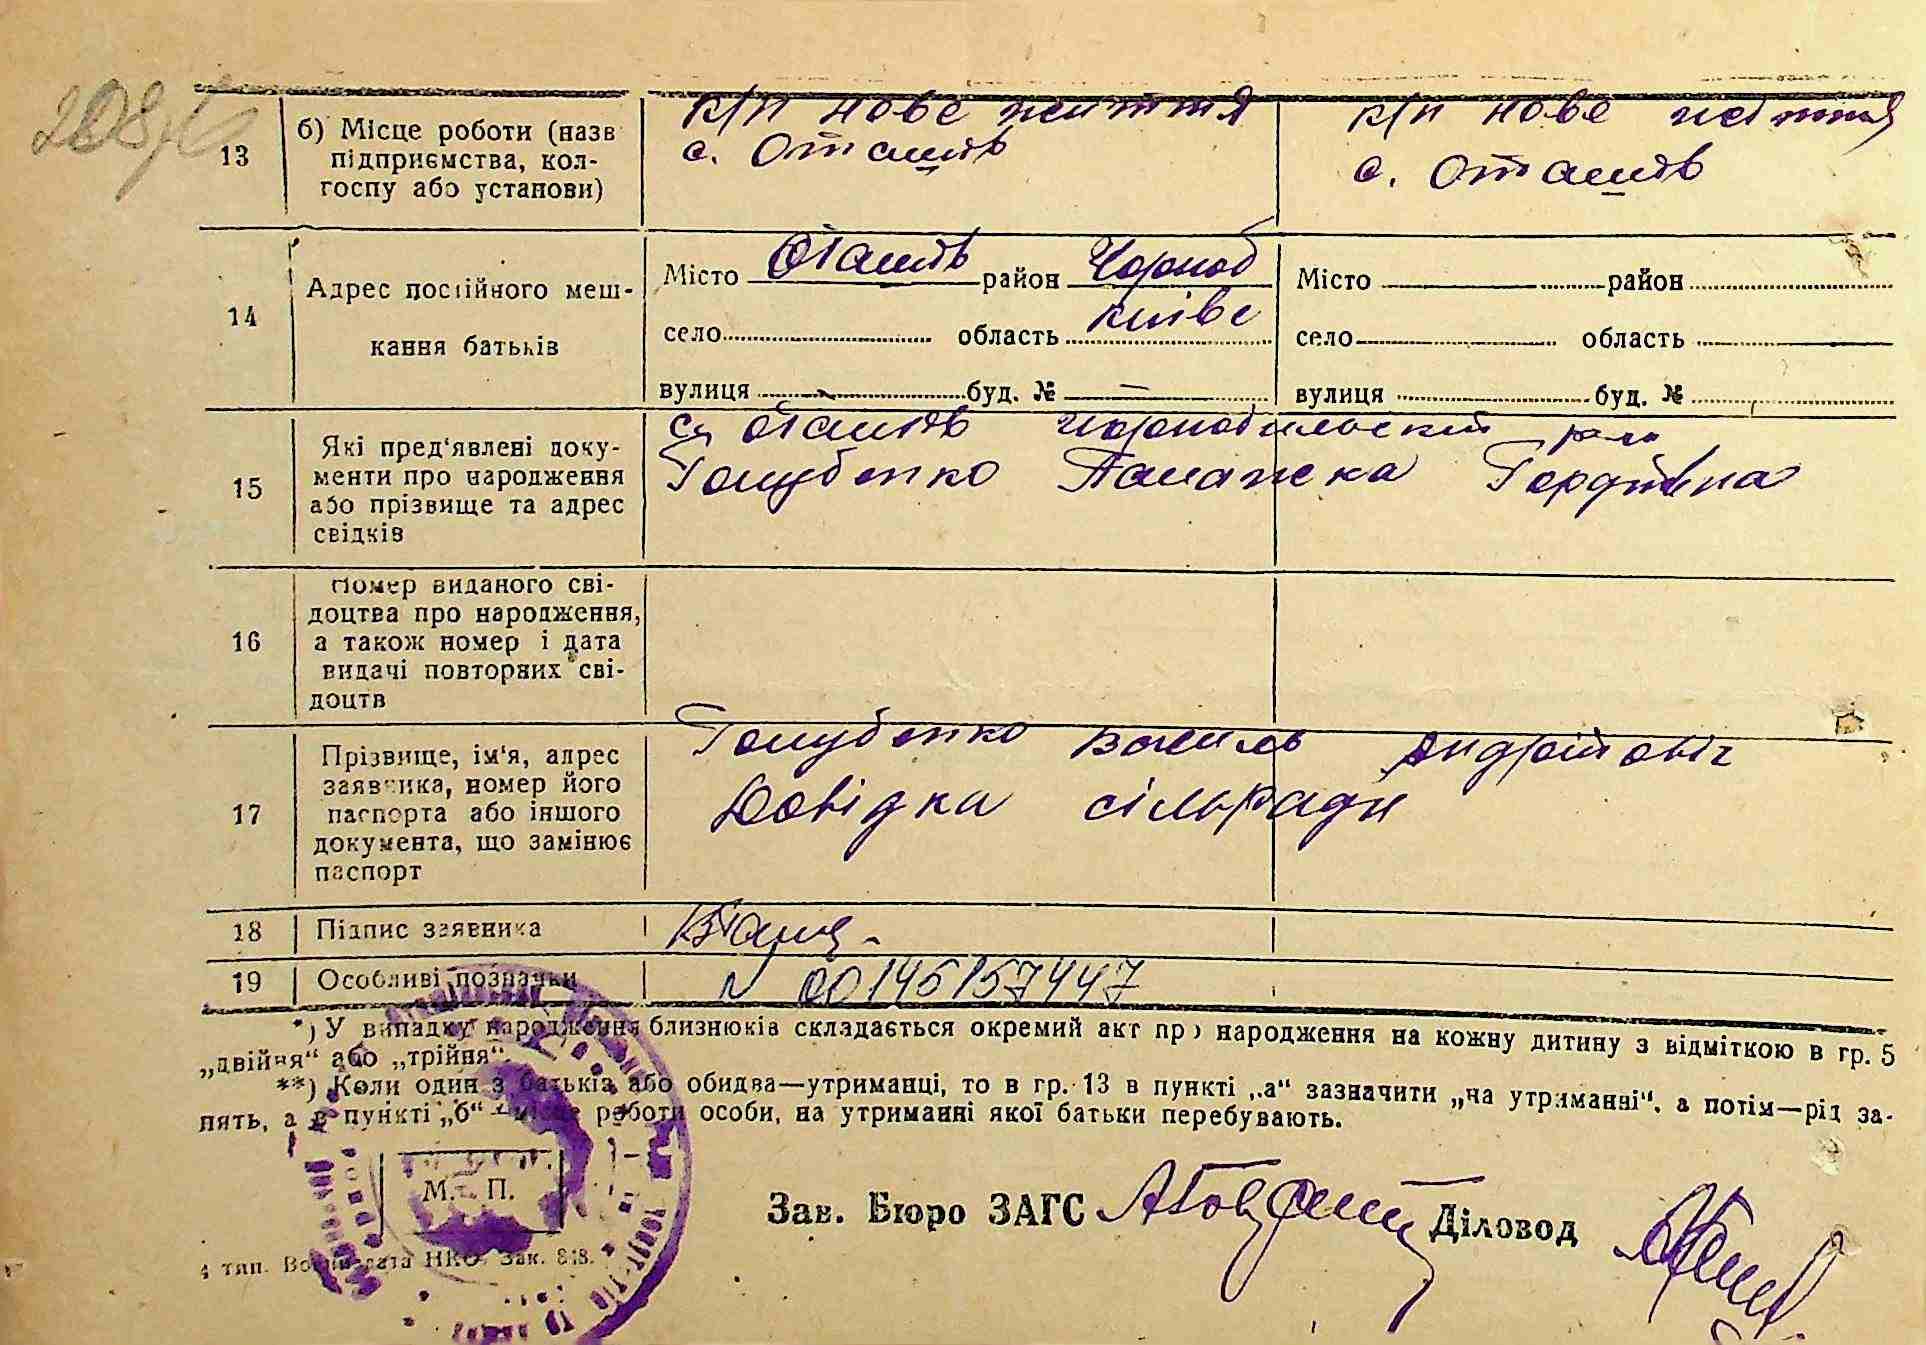 13
б) Місце роботи (назв
підприємства, кол-
госпу або установи)
к/п нове життя
с. Оташів
к/п нове життя
с. Оташів
14
Адрес постійного меш-
кання батьків
Місто Оташів район Чорноб
село область Київс
вулиця буд. № —
Місто район
село область
вулиця буд. №
15
Які пред‘явлені доку-
менти про народження
або прізвище та адрес
свідків
с. Оташів Чорнобильский
Голубенко Палажка Гордіївна
16
Номер виданого сві-
доцтва про народження,
а також номер і дата
видачі повторних сві-
доцтв
17
Прізвище, ім‘я, адрес
заявника, номер його
паспорта або іншого
документа, що замінює
паспорт
Голубенко Василь Андрійовіч
Довідка сільради
18
Підпис заявника
19
Особливі позначки
N 00145157447
*) У випадку народження близнюків складається окремий акт про народження на кожну дитину з відміткою в гр. 5
„двійня“ або „трійня“.
**) Коли один з батьків або обидва—утриманці, то в гр. 13 в пункті „а“ зазначити „на утриманні“, а потім—рід за-
нять, а в пункті „б“ — місце роботи особи, на утриманні якої батьки перебувають.
М. П.
Зав. Бюро ЗАГС
Діловод
4 тип. Воениздата НКО. Зак. 848.